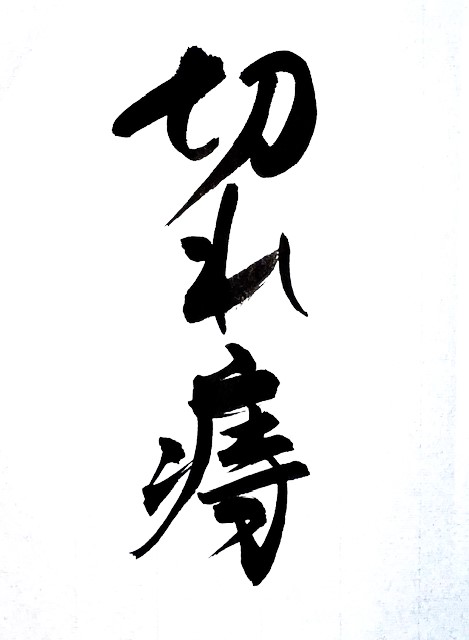 切れ痔